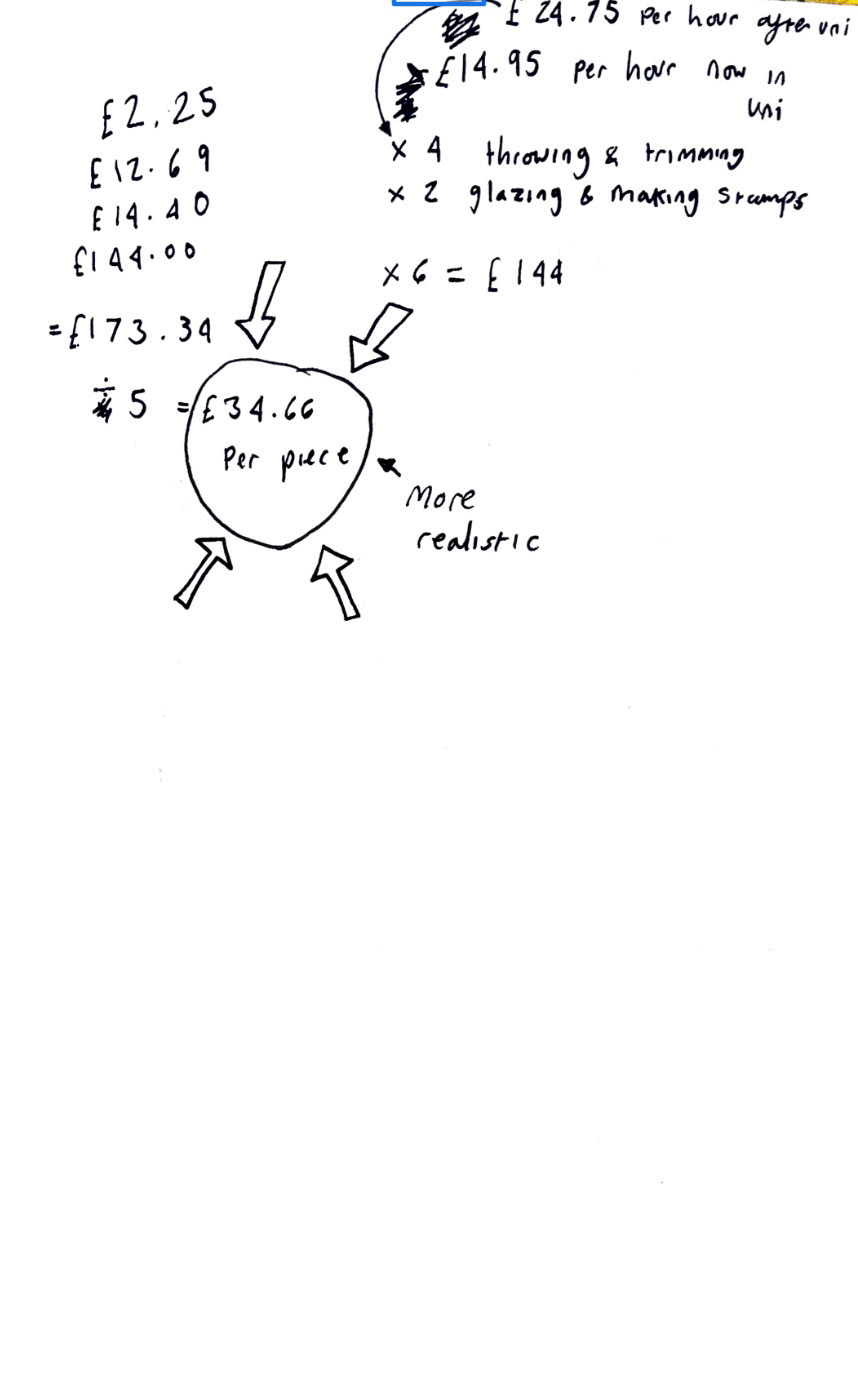 £24.75 per hour after uni
£14.95 per hour now in
uni
x 4 throwing & trimming
x 2 glazing & making stamps
x 6 = £144
£2.25
£12.69
£14.40
£144.00
= £173.34
÷ 5 = £34.66
Per piece
More
realistic